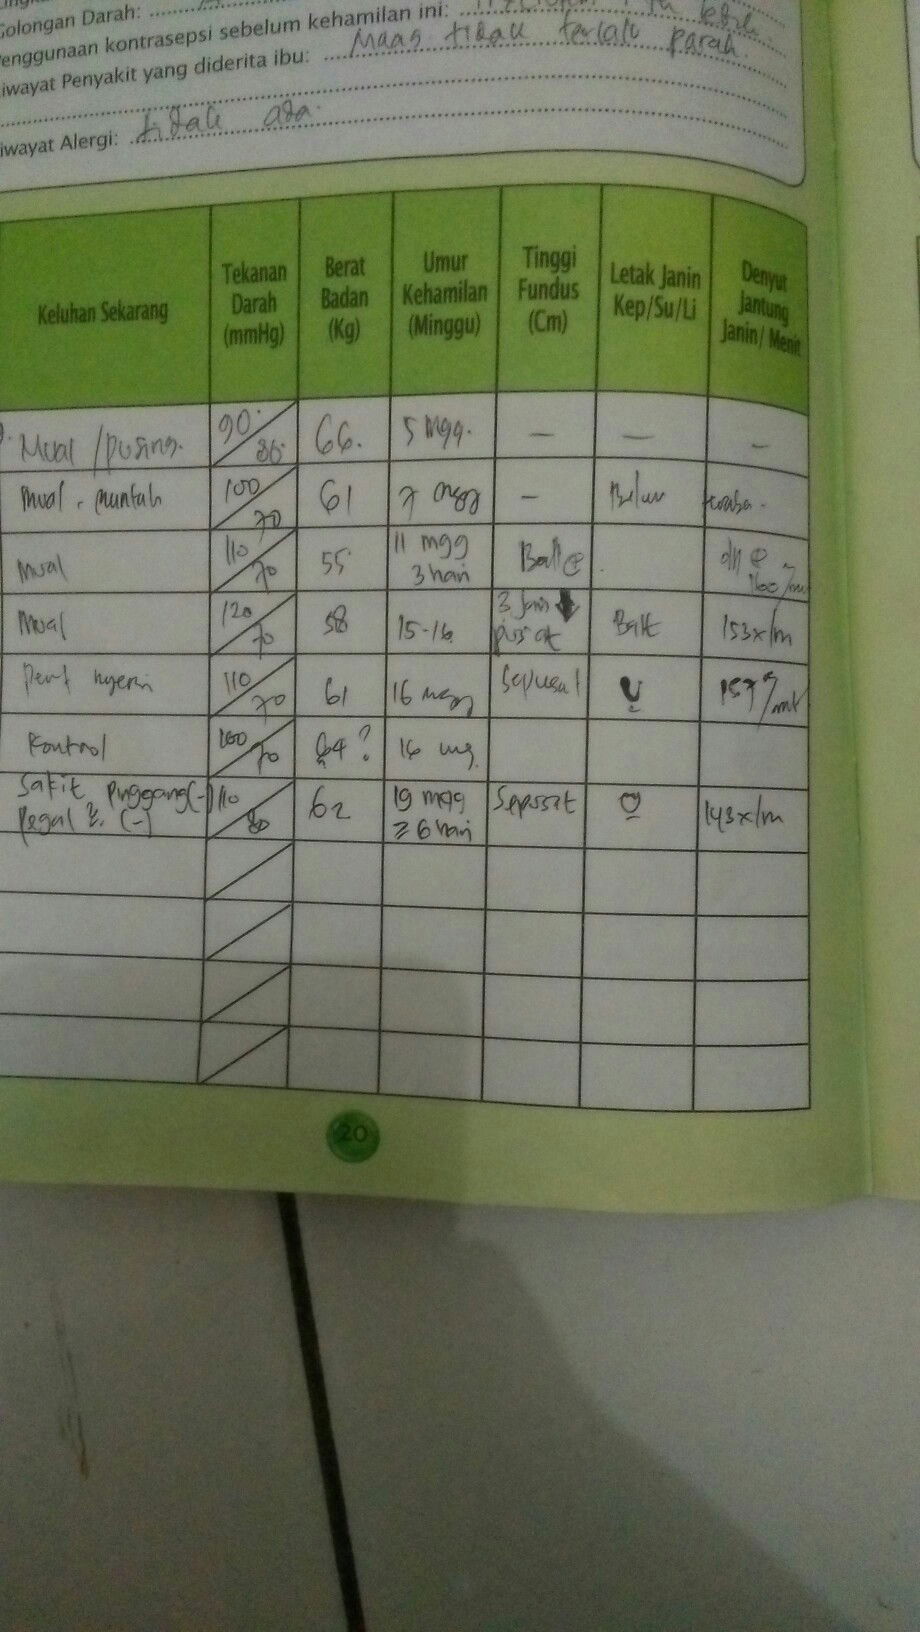 Golongan Darah:
enggunaan kontrasepsi sebelum kehamilan ini:
iwayat Penyakit yang diderita ibu: Maag tidak terlalu parah
iwayat Alergi: tidak ada.
Keluhan Sekarang
Tekanan Darah (mmHg)
Berat Badan (Kg)
Umur Kehamilan (Minggu)
Tinggi Fundus (Cm)
Letak Janin Kep/Su/Li
Denyut Jantung Janin/ Menit
Mual /pusing. 90 / 80 66. 5 mgg. — — —
mual - muntah 100/70 61 7 mgg — Belum teraba.
Mual 110/70 55 11 mgg 3 hari Ball 160/m
Mual 120/70 58 15-16 3 Jari ↓ pusat Ball 153x/m
nyeri 110/70 61 16 mgg Sepusat 157
Kontrol 100/70 64? 16 mg.
Sakit pinggang (-) pegal2. (-) 110/80 62 19 mgg 6 hari Seppusat 143x/m
20